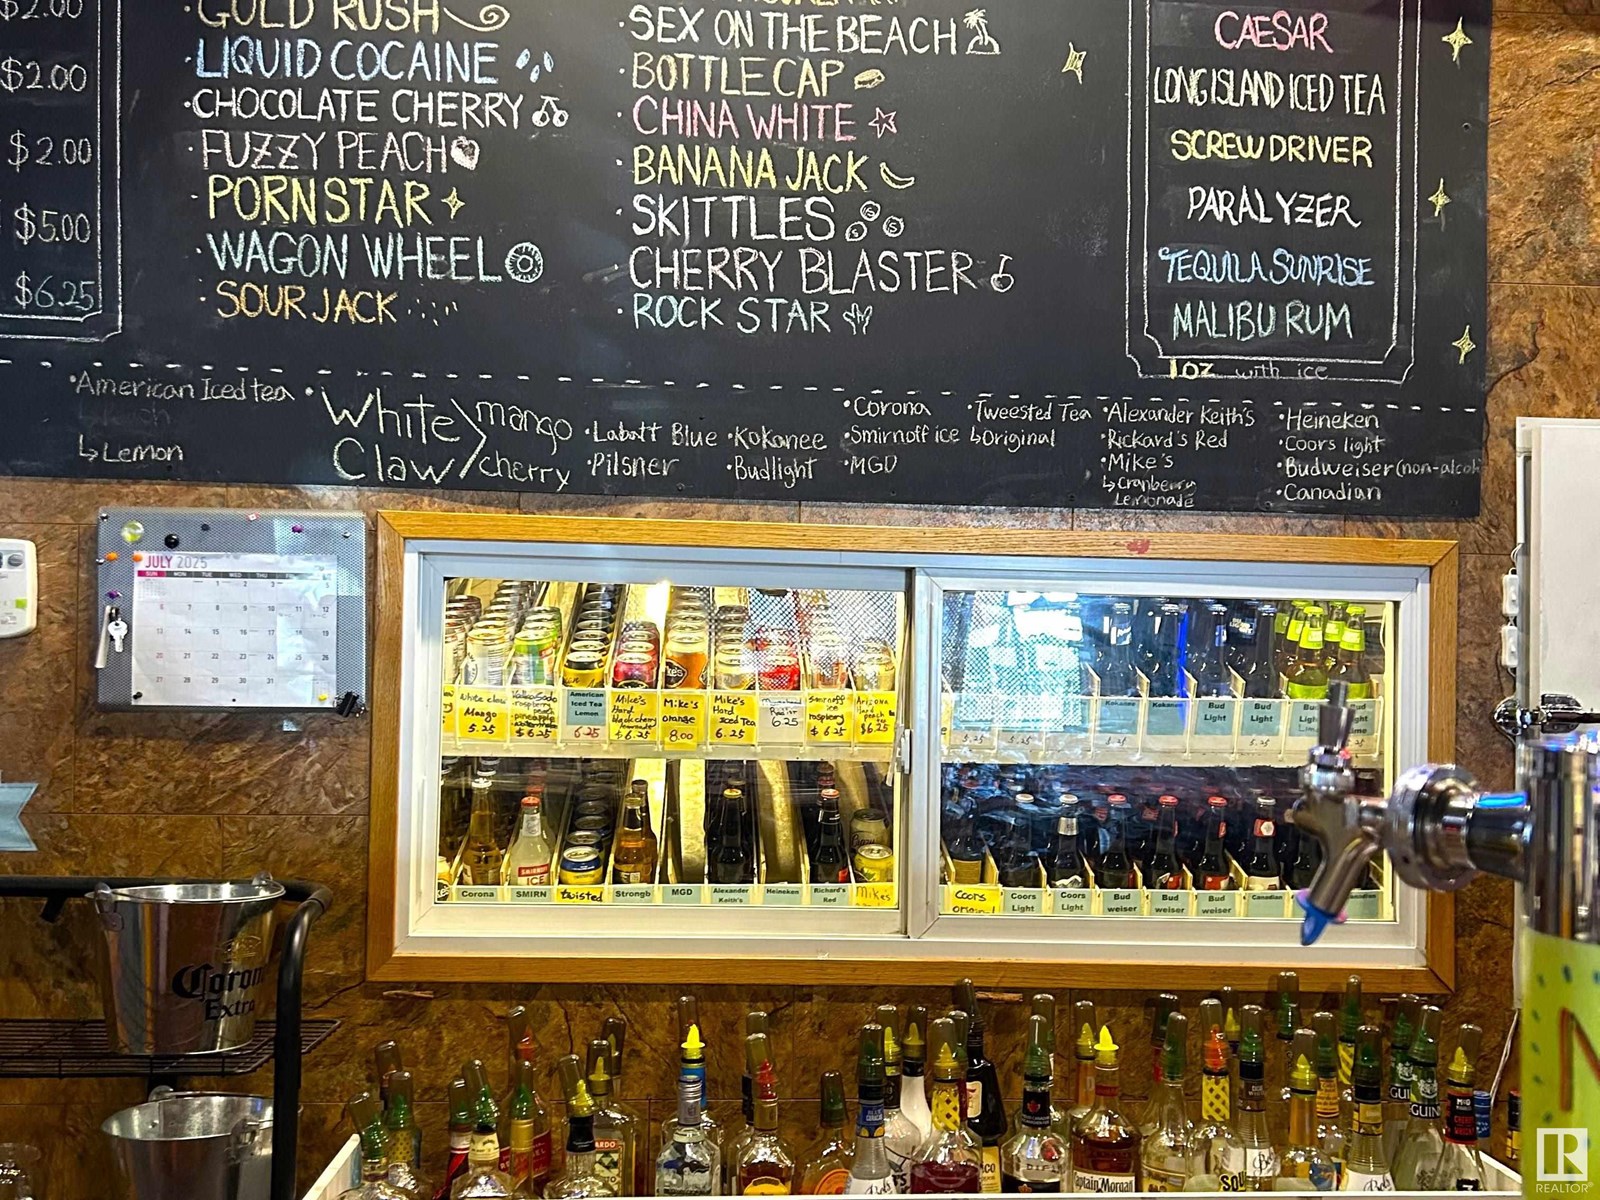 $2.00
$2.00
$2.00
$5.00
$6.25
GOLD RUSH
LIQUID COCAINE
CHOCOLATE CHERRY
FUZZY PEACH
PORNSTAR
WAGON WHEEL
SOUR JACK
SEX ON THE BEACH
BOTTLECAP
CHINA WHITE
BANANA JACK
SKITTLES
CHERRY BLASTER
ROCK STAR
CAESAR
LONG ISLAND ICED TEA
SCREWDRIVER
PARALYZER
TEQUILA SUNRISE
MALIBU RUM
1oz with ice
American Iced tea
Lemon
White Claw
mango
cherry
Labatt Blue
Pilsner
Kokanee
Budlight
Corona
Smirnoff ice
MGD
Tweested Tea
Original
Alexander Keith's
Rickard's Red
Mike's
Cranberry
Lemonade
Heineken
Coors light
Budweiser (non-alcoh
Canadian
JULY 2025
SUN MON TUE WED THU
White claw
Mango
5.25
raspberry
pineapple
$6.25
American
Iced Tea
Lemon
6.25
Mike's
Hard
black cherry
lemonade
$6.25
Mike's
orange
8.00
Mike's
Hard
Iced Tea
6.25
6.25
Smirnoff
ice
raspberry
$6.25
Arizona
Hard
peach
$6.25
5.25
5.25
Kokanee
5.25
Kokanee
Bud
Light
Bud
Light
5.25
Bud
Corona
SMIRN
twisted
Strongb
MGD
Alexander
Keith's
Heineken
Richard's
Red
Mike's
Coors
Coors
Light
Coors
Light
Bud
weiser
Bud
weiser
Bud
weiser
Canadian
Corona
Extra
Captain Morgan
GUIN
R
REALTOR®